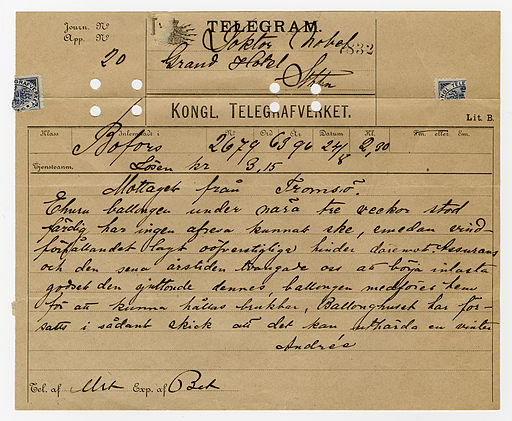 Journ. Nº
App. Nº
20
TELEGRAM.
Doktor Nobel
832
Grand Hotel
Sthlm
KONGL. TELEGRAFVERKET.
Lit. B.
Klass Inlemnadt i Nº Ord Gr. Datum Kl. Fm. eller Em.
Bofors 2679 63 96 24/8 2,30
Tjensteanm.
Lösen kr 3,15
Mottaget från Tromsö.
Ehuru ballongen under nära tre veckor stod
färdig har ingen afresa kunnat ske, emedan vind-
förhållandet lagt oöfverstiglige hinder deremot. Assurans
och den sena årstiden tvingade oss att börja inlasta
godset den sjuttonde dennes ballongen medföres hem
för att kunna hållas brukbar, Ballonghuset har för-
satts i sådant skick att det kan uthärda en vinter
Andrée
Tel. af Urt Exp. af Bet